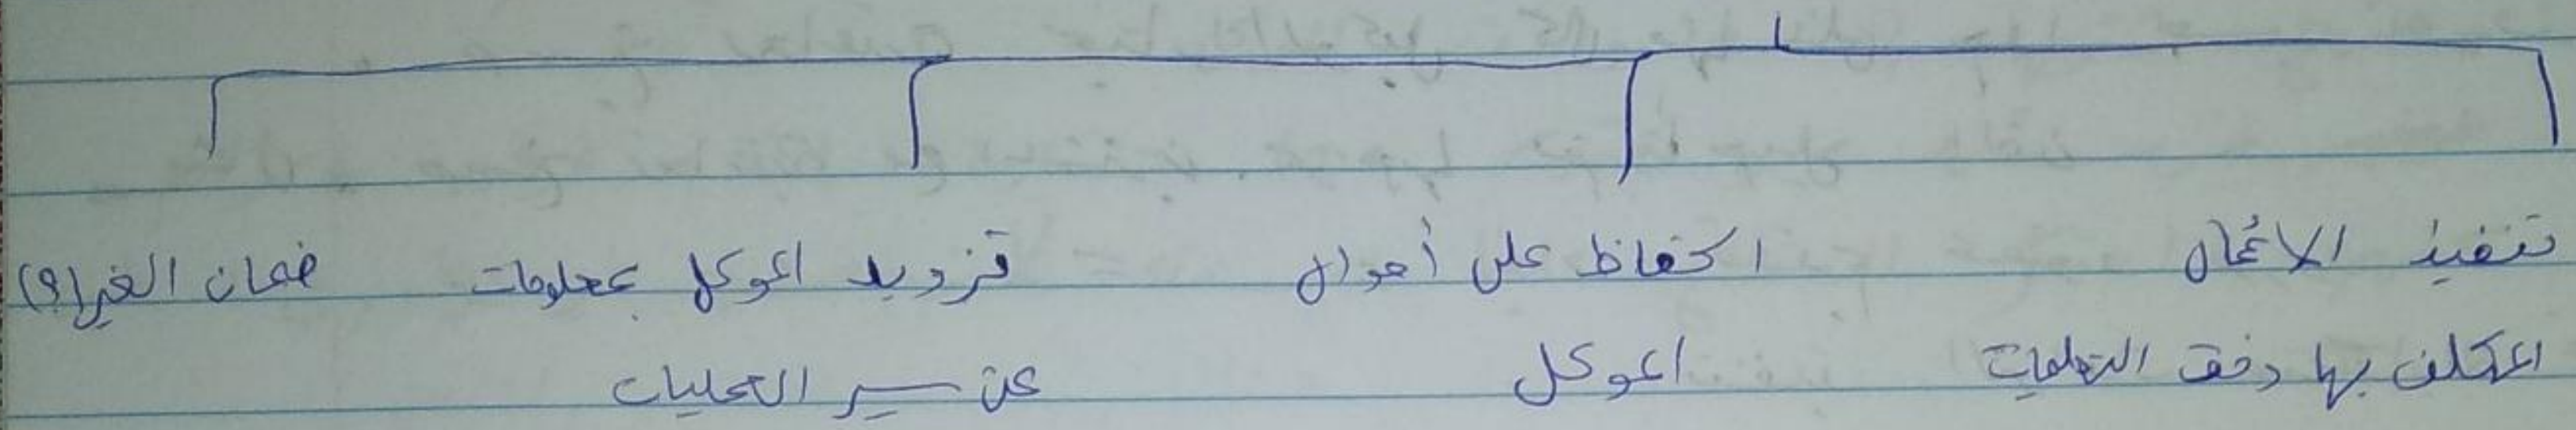 تنفيذ الاعمال
المكلف بها وفق التعليمات
الحفاظ على أموال
الموكل
تزويد الموكل بمعلومات
عن سير العمليات
ضمان الغير (؟)